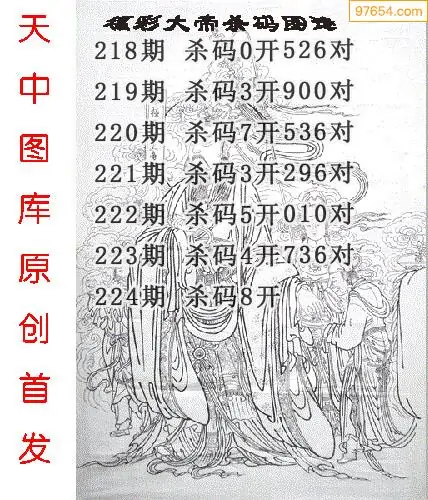 97654.com
福彩大帝杀码图谜
218期 杀码0开526对
219期 杀码3开900对
220期 杀码7开536对
221期 杀码3开296对
222期 杀码5开010对
223期 杀码4开736对
224期 杀码8开
天中图库原创首发